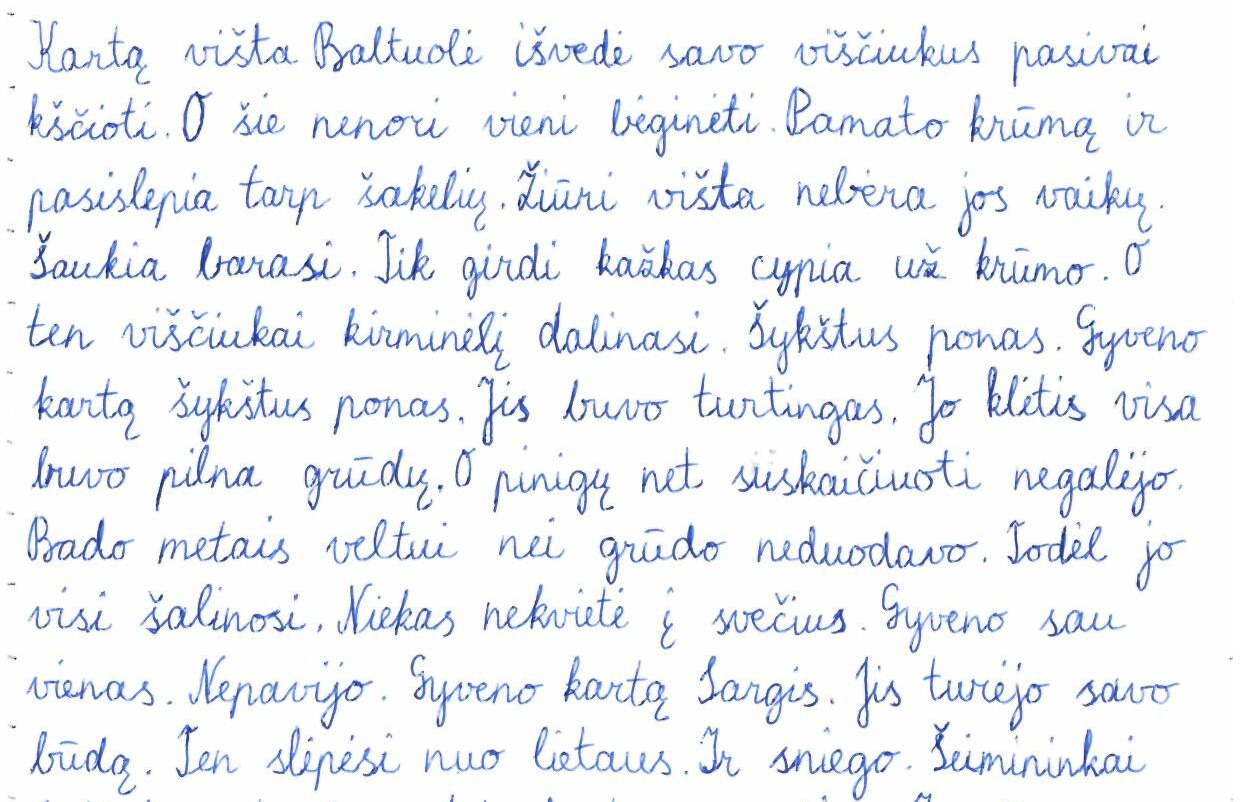 Kartą višta Baltuolė išvedė savo viščiukus pasivai
kščioti. O šie nenori vieni bėginėti. Pamato krūmą ir
pasislepia tarp šakelių. Žiūri višta nebėra jos vaikų.
Šaukia barasi. Tik girdi kažkas cypia už krūmo. O
ten viščiukai kirminėlį dalinasi. Šykštus ponas. Gyveno
kartą šykštus ponas. Jis buvo turtingas. Jo klėtis visa
buvo pilna grūdų. O pinigų net suskaičiuoti negalėjo.
Bado metais veltui nei grūdo neduodavo. Todėl jo
visi šalinosi. Niekas nekvietė į svečius. Gyveno sau
vienas. Nepavijo. Gyveno kartą Sargis. Jis turėjo savo
būdą. Ten slėpėsi nuo lietaus. Ir sniego. Šeimininkai